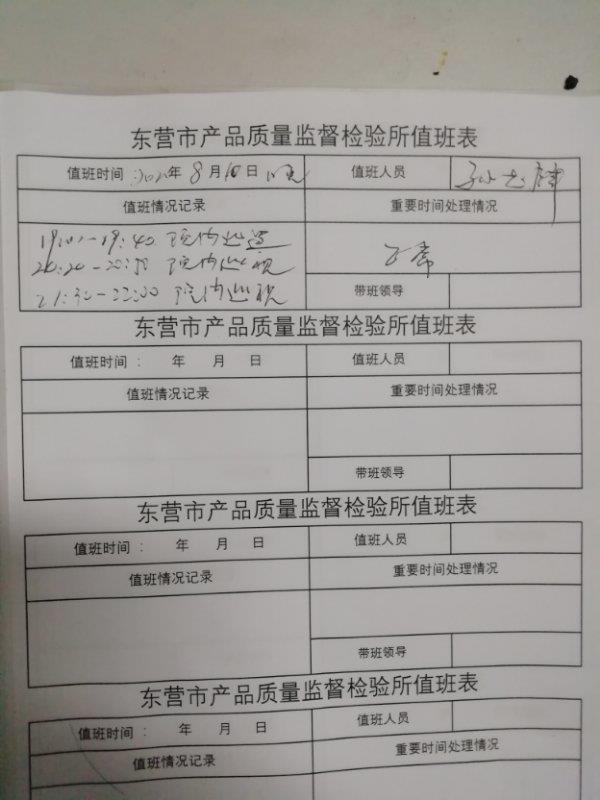 东营市产品质量监督检验所值班表
值班时间： 年 8 月 10 日 值班人员
值班情况记录 重要时间处理情况
19:00-19:40 院内巡
20:20-20:50 院内巡视 正常
21:30-22:00 院内巡视 带班领导
东营市产品质量监督检验所值班表
值班时间： 年 月 日 值班人员
值班情况记录 重要时间处理情况
带班领导
东营市产品质量监督检验所值班表
值班时间： 年 月 日 值班人员
值班情况记录 重要时间处理情况
带班领导
东营市产品质量监督检验所值班表
值班时间： 年 月 日 值班人员
值班情况记录 重要时间处理情况